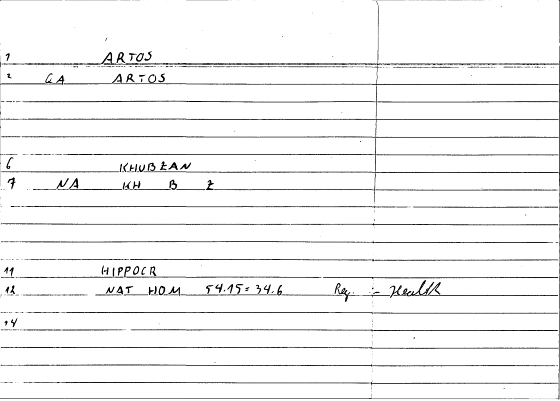 1 ARTOS
2 GA ARTOS
6 KHUBZAN
7 NA KH B Z
11 HIPPOCR
12 NAT HOM 54.15=34.6 Reg. :- Health
14